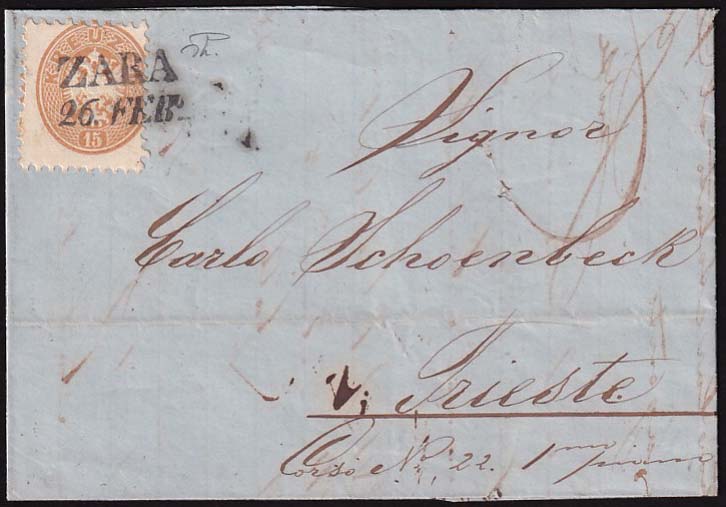 ZARA
26. FEB.
15
Signor
Carlo Schoenbeck
Trieste
Corso No. 22. 1mo piano